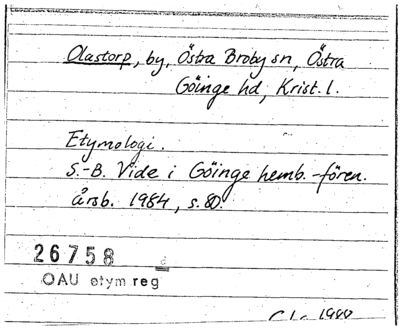 Olastorp, by, Östra Broby sn, Östra
Göinge hd, Krist. l.
Etymologi.
S.-B. Vide i Göinge hemb.-fören.
årsb. 1984, s. 80.
26758
OAU etym reg
1988